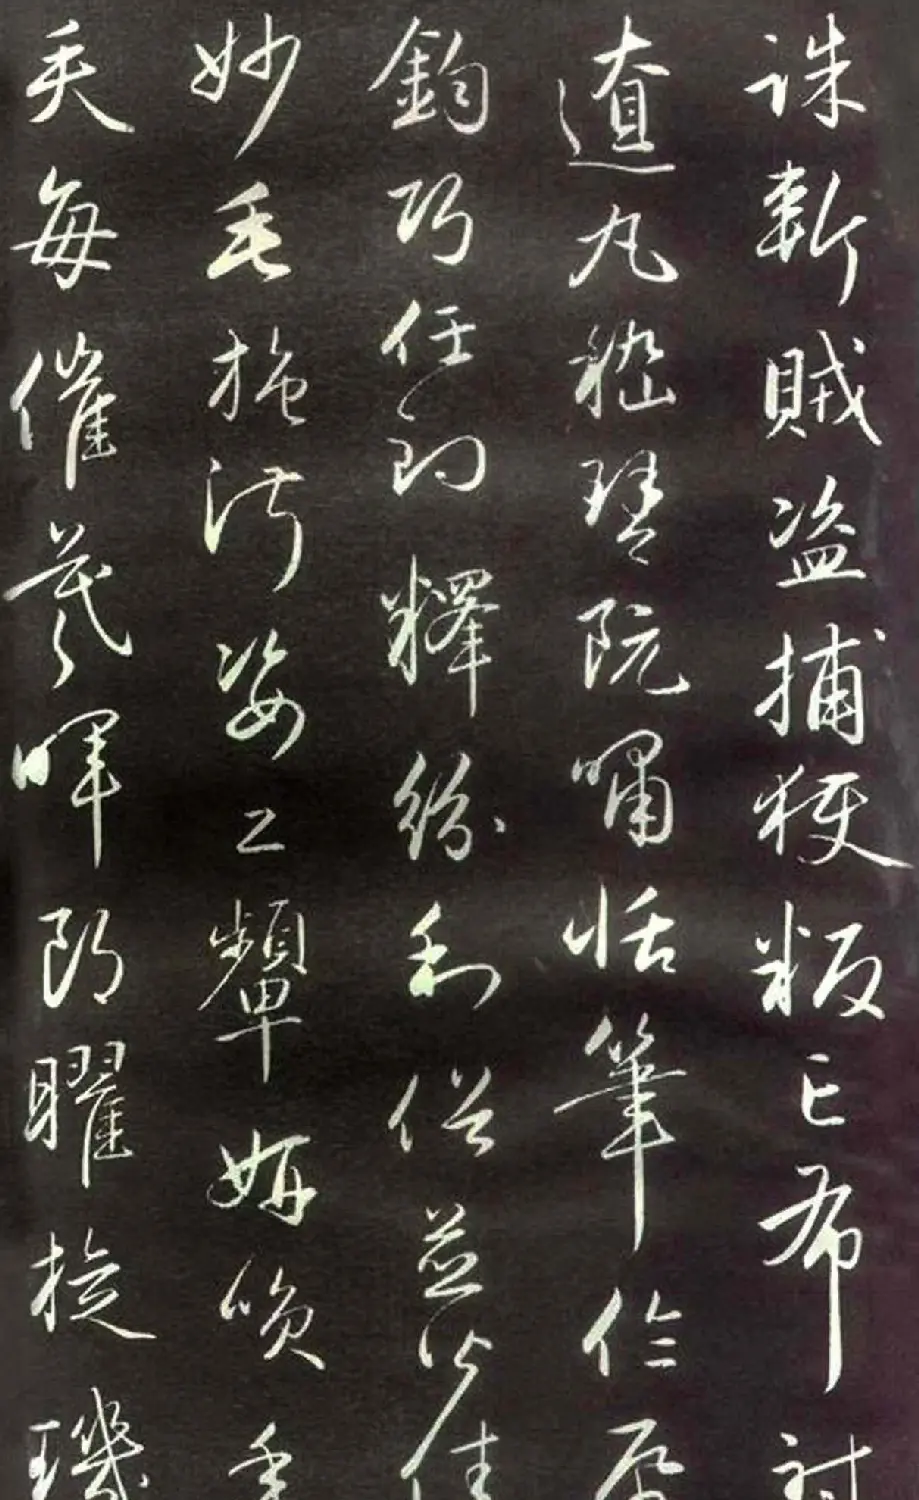 誅斬賊盗捕獲叛亡布射
遼丸嵇琴阮嘯恬筆倫紙
鈞巧任釣釋紛利俗並皆佳
妙毛施淑姿工顰妍笑年
矢每催羲暉朗曜旋璣